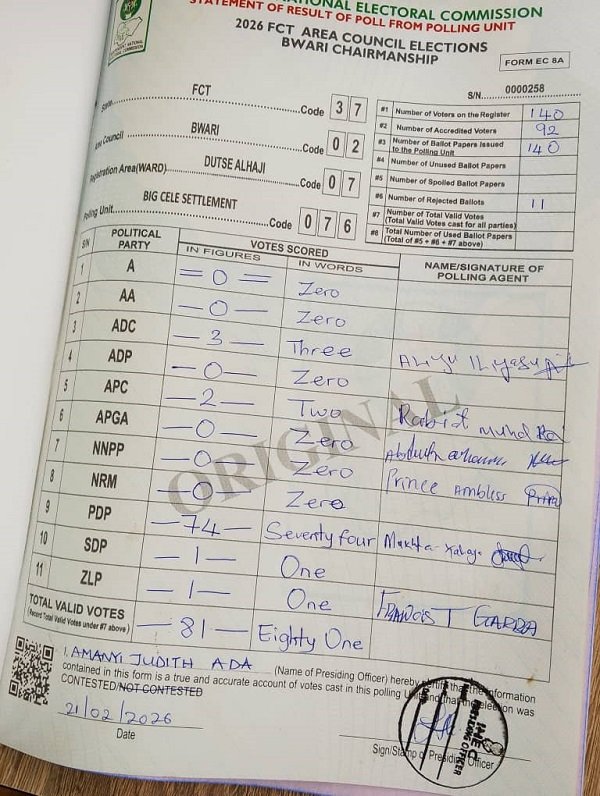 NATIONAL ELECTORAL COMMISSION
STATEMENT OF RESULT OF POLL FROM POLLING UNIT
2026 FCT AREA COUNCIL ELECTIONS
BWARI CHAIRMANSHIP
FORM EC 8A
S/N 0000258
State FCT Code 3 7
Area Council BWARI Code 0 2
Registration Area(WARD) DUTSE ALHAJI Code 0 7
Polling Unit BIG CELE SETTLEMENT Code 0 7 6
#1 Number of Voters on the Register 140
#2 Number of Accredited Voters 92
#3 Number of Ballot Papers Issued to the Polling Unit 140
#4 Number of Unused Ballot Papers
#5 Number of Spoiled Ballot Papers
#6 Number of Rejected Ballots 11
#7 Number of Total Valid Votes (Total Valid Votes cast for all parties)
#8 Total Number of Used Ballot Papers (Total of #5 + #6 + #7 above)
S/N POLITICAL PARTY VOTES SCORED NAME/SIGNATURE OF POLLING AGENT
IN FIGURES IN WORDS
1 A =0= Zero
2 AA -0- Zero
3 ADC -3- Three Aliyu Iliyasu
4 ADP -0- Zero
5 APC -2- Two Rabiat Muhd
6 APGA -0- Zero
7 NNPP -0- Zero Prince Ambless
8 NRM -0- Zero
9 PDP -74- Seventy four
10 SDP -1- One
11 ZLP -1- One FRANCIS T GARBA
TOTAL VALID VOTES -81- Eighty One
(Record Total Valid Votes under #7 above)
ORIGINAL
I, AMANYI JUDITH ADA (Name of Presiding Officer) hereby certify that the information
contained in this form is a true and accurate account of votes cast in this polling Unit and that the election was
CONTESTED/NOT CONTESTED
21/02/2026
Date
Sign/Stamp of Presiding Officer
INEC
PRESIDING OFFICER